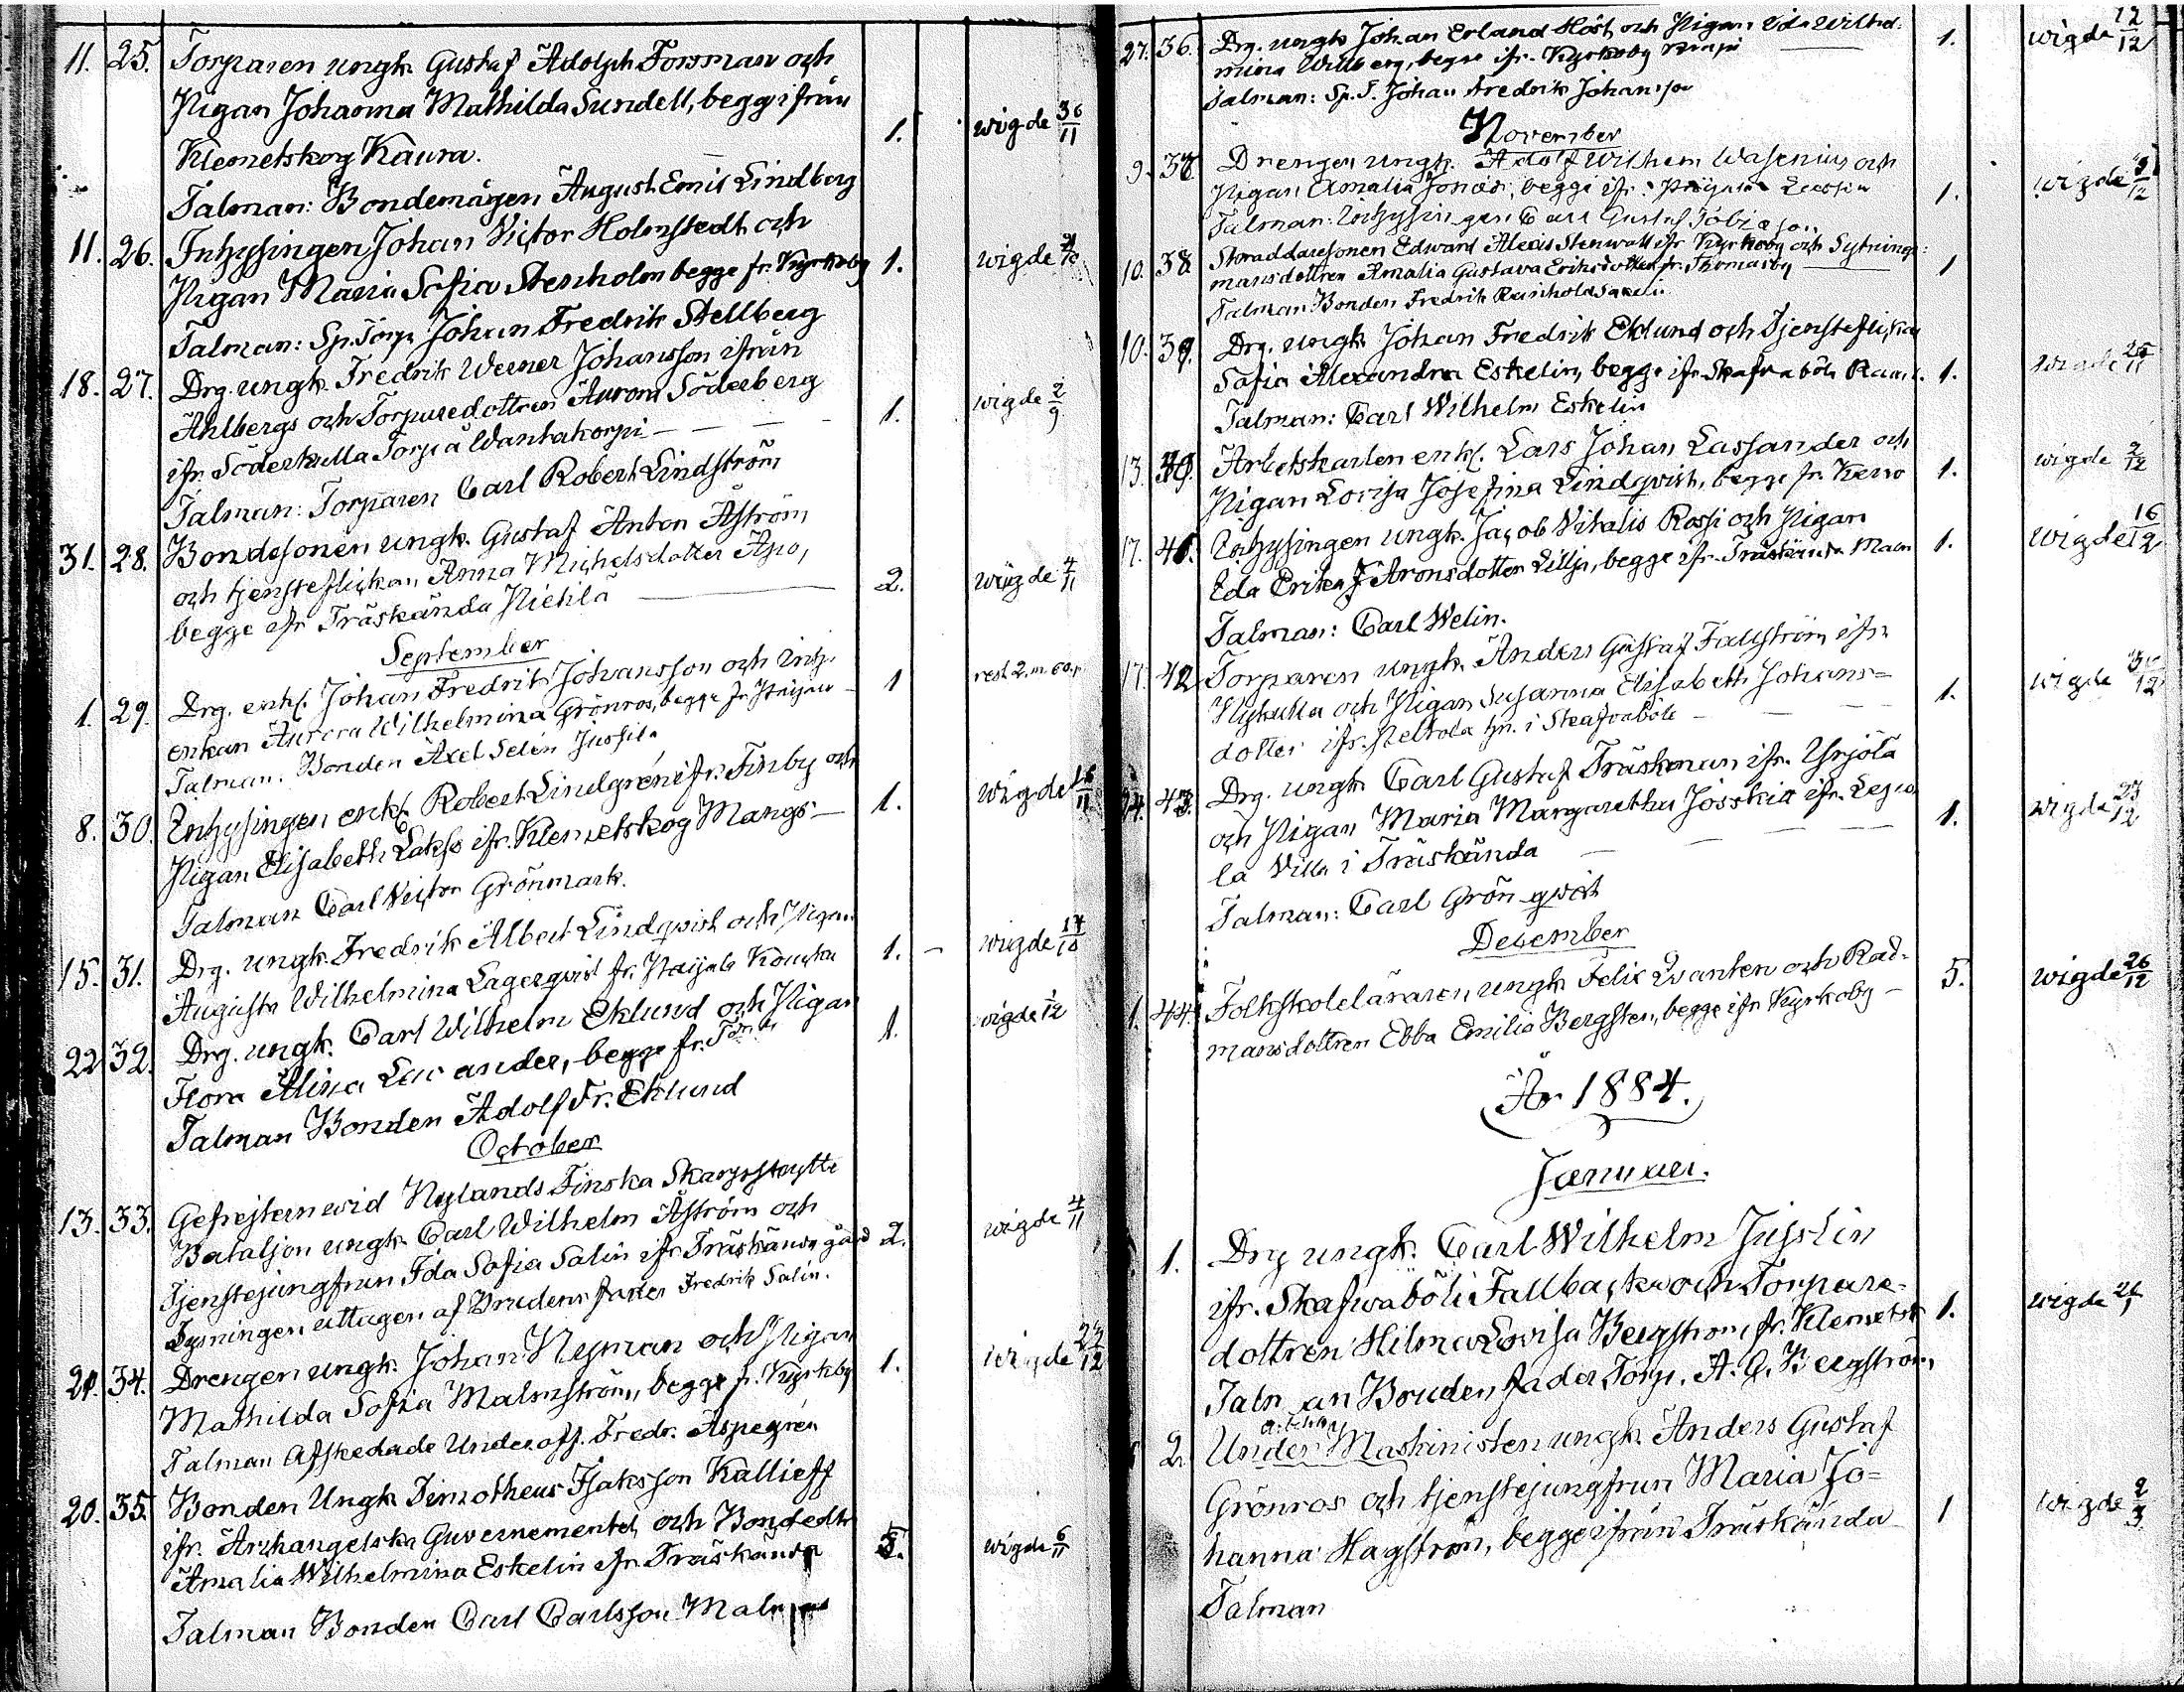 11. 25. Torparen ungk. Gustaf Adolph Forsman och
Pigan Johanna Mathilda Sundell, begge ifrån
Klemetskog Kaura. 1. wigde 30/11
Talman: Bondemågen August Emil Lindberg
11. 26. Inhysingen Johan Victor Holmstedt och
Pigan Maria Sofia Stenholm begge fr. Kyrkoby 1. wigde
Talman: Sp. Torp. Johan Fredrik Stellberg
18. 27. Drg. ungk. Fredrik Werner Johansson ifrån
Ahlbergs och Torparedottren Aurora Söderberg 1. wigde 2/9
ifr. Söderkulla Torp å Wantakorpi
Talman: Torparen Carl Robert Lindström
31. 28. Bondesonen ungk. Gustaf Anton Åström
och tjensteflickan, Anna Michelsdotter Apo, 2. wigde 4/11
begge ifr Träskända Pietilä
September
1. 29. Drg. enkl. Johan Fredrik Johansson och Inh.
enkan Aurora Wilhelmina Grönroos, begge fr. 1 rest. 2. m.
Talman: Bonden Axel Selin Jussila
8. 30. Inhysingen enkl. Robert Lindgrén ifr. Finby och 1. wigde
Pigan Elisabeth Lakso ifr. Klemetskog Mangs
Talman Carl Victor Grönmark.
15. 31. Drg. ungk. Fredrik Albert Lindqvist och Pigan 1. wigde 14/10
Augusta Wilhelmina Lagerqvist fr.
22. 32. Drg. ungk. Carl Wilhelm Eklund och Pigan 1. wigde
Flora Alina, begge fr.
Talman Bonden Adolf Fr. Eklund
October
13. 33. Gefrejtern wid Nylands Finska Skarpskytte
Bataljon ungk. Carl Wilhelm Åström och 2. wigde 4/11
Tjenstejungfrun Ida Sofia Salin ifr. Träskända gård
Lysningen uttagen af Brudens fader Fredrik Salin.
34. Drengen ungk. Johan Nyman och Pigan
Mathilda Sofia Malmström, begge fr. Kyrkoby 1. wigde
Talman Afskedade Underoff. Fredr. Aspegrén
20. 35. Bonden Ungk Timotheus Isaksson Kallieff
ifr. Archangelska Guvernementet, och Bondedtr
Amalia Wilhelmina Eskelin ifr Träskända wigde 6/11
Talman Bonden Carl Carlsson
27. 36. Drg. ungk Johan Erland Höst och Pigan Ida Wilhel- 1. wigde 12/12
mina Willberg, begge ifr. Kyrkoby
Talman: Sp. T. Johan Fredrik Johansson
November
9. 37. Drengen ungk. Adolf Wilhelm Wasenius och
Pigan Amalia, begge ifr. 1. wigde
Talman: Inhysingen Carl Gustaf
10. 38 Edward Alexis Stenwall ifr Kyrkoby och Sytnings-
mansdottren Amalia Gustava Eriksdotter fr. Thomasby 1
Talman Bonden Fredrik Reinhold
10. 39. Drg. ungk Johan Fredrik Eklund och Tjensteflickan
Sofia Alexandra Eskelin, begge ifr. Skafvaböle 1. wigde
Talman: Carl Wilhelm Eskelin
13. 40. Arbetskarlen enkl. Lars Johan Lassander och
Pigan Lovisa Josefina Lindqvist, begge fr. Kervo 1. wigde 2/12
17. 41. Inhysingen ungk. Jacob Vitalis Rossi och Pigan
Eda Erika Aronsdotter Lillja, begge ifr. Träskända 1. wigde 16/12
Talman: Carl Welin.
17. 42 Torparen ungk. Anders Gustaf Fallström ifr.
Nykulla och Pigan Susanna Elisabeth Johans= 1. wigde
dotter ifr. i Skafvaböle
43. Drg. ungk Carl Gustaf Träskman ifr. Yrjölä
och Pigan Maria Margaretha Josskitt ifr. 1. wigde 23/12
la Villa i Träskända
Talman: Carl Grönqwist
December
1. 44. Folkskoleläraren, ungk Felix Qvanten och Råd- 5. wigde 26/12
mansdottren Ebba Emilia Bergsten, begge ifr Kyrkoby
År 1884.
Januari.
1. Drg ungk. Carl Wilhelm Jusslin
ifr. Skafvaböle Fallbacka och Torpare-
dottren Hilma Lovisa Bergström fr. Klemetsk 1. wigde
Talman Brudens fader, Torp. A. G. Bergström
2. Under Maskinisten ungk. Anders Gustaf
Grönroos och tjenstejungfrun Maria Jo=
hanna Hagström, begge ifrån Träskända 1 wigde 2/3
Talman